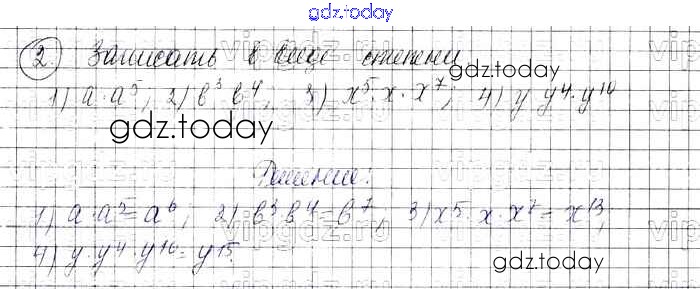 gdz.today
2. Записать в виде степени
gdz.today
1) a · a⁵; 2) b³ b⁴; 3) x⁵ · x · x⁷; 4) y y⁴ · y¹⁰
gdz.today
Решение:
1) a · a⁵ = a⁶; 2) b³ b⁴ = b⁷; 3) x⁵ · x · x⁷ = x¹³,
4) y · y⁴ · y¹⁰ = y¹⁵.
gdz.today